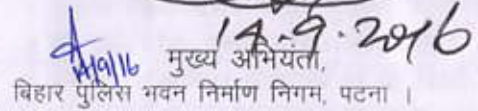 14.9.2016
14/9/16
मुख्य अभियंता,
बिहार पुलिस भवन निर्माण निगम, पटना ।